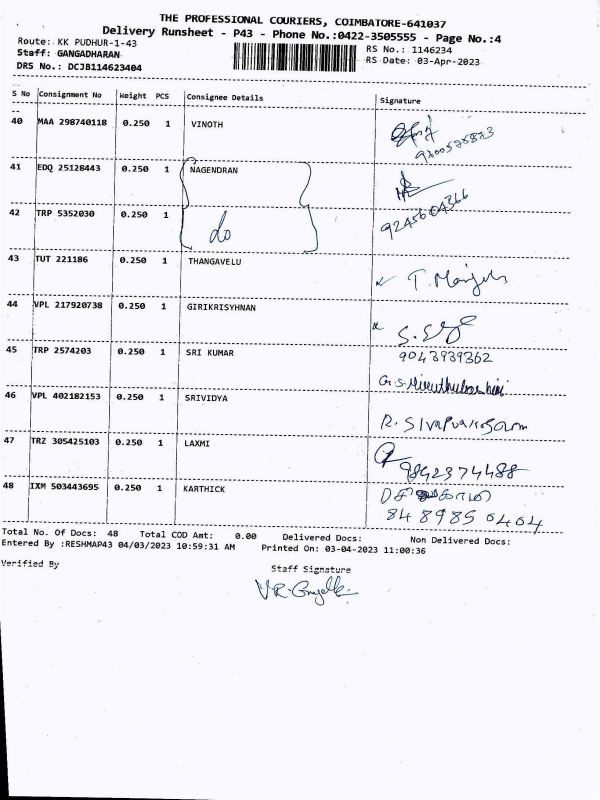 THE PROFESSIONAL COURIERS, COIMBATORE-641037
Delivery Runsheet - P43 - Phone No.:0422-3505555 - Page No.:4
Route: KK PUDHUR-1-43
RS No.: 1146234
Staff: GANGADHARAN
RS Date: 03-Apr-2023
DRS No.: DCJB114623404
S No Consignment No Weight PCS Consignee Details Signature
40 MAA 298740118 0.250 1 VINOTH
41 EDQ 25128443 0.250 1 NAGENDRAN
42 TRP 5352030 0.250 1 do 9245604366
43 TUT 221186 0.250 1 THANGAVELU
44 VPL 217920738 0.250 1 GIRIKRISYHNAN
9043939362
45 TRP 2574203 0.250 1 SRI KUMAR
46 VPL 402182153 0.250 1 SRIVIDYA
47 TRZ 305425103 0.250 1 LAXMI 9842374488
48 IXM 503443695 0.250 1 KARTHICK
848985 0404
Total No. Of Docs: 48 Total COD Amt: 0.00 Delivered Docs: Non Delivered Docs:
Entered By :RESHMAP43 04/03/2023 10:59:31 AM Printed On: 03-04-2023 11:00:36
Verified By
Staff Signature